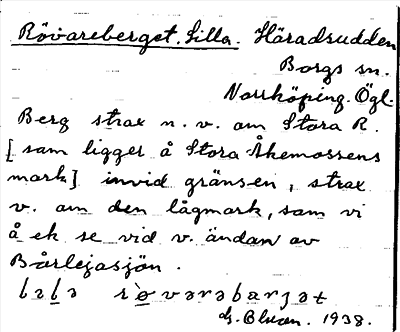 Rövareberget. Lilla. Häradsudden
Borgs sn.
Norrköping. Ögl.
Berg strax n. v. om Stora R.
[som ligger å Stora Åkemossens
mark] invid gränsen, strax
v. om den lågmark, som vi
å ek se vid v. ändan av
Bårlejasjön.
lɩlɩ rövarəbarjət
G. 1938.